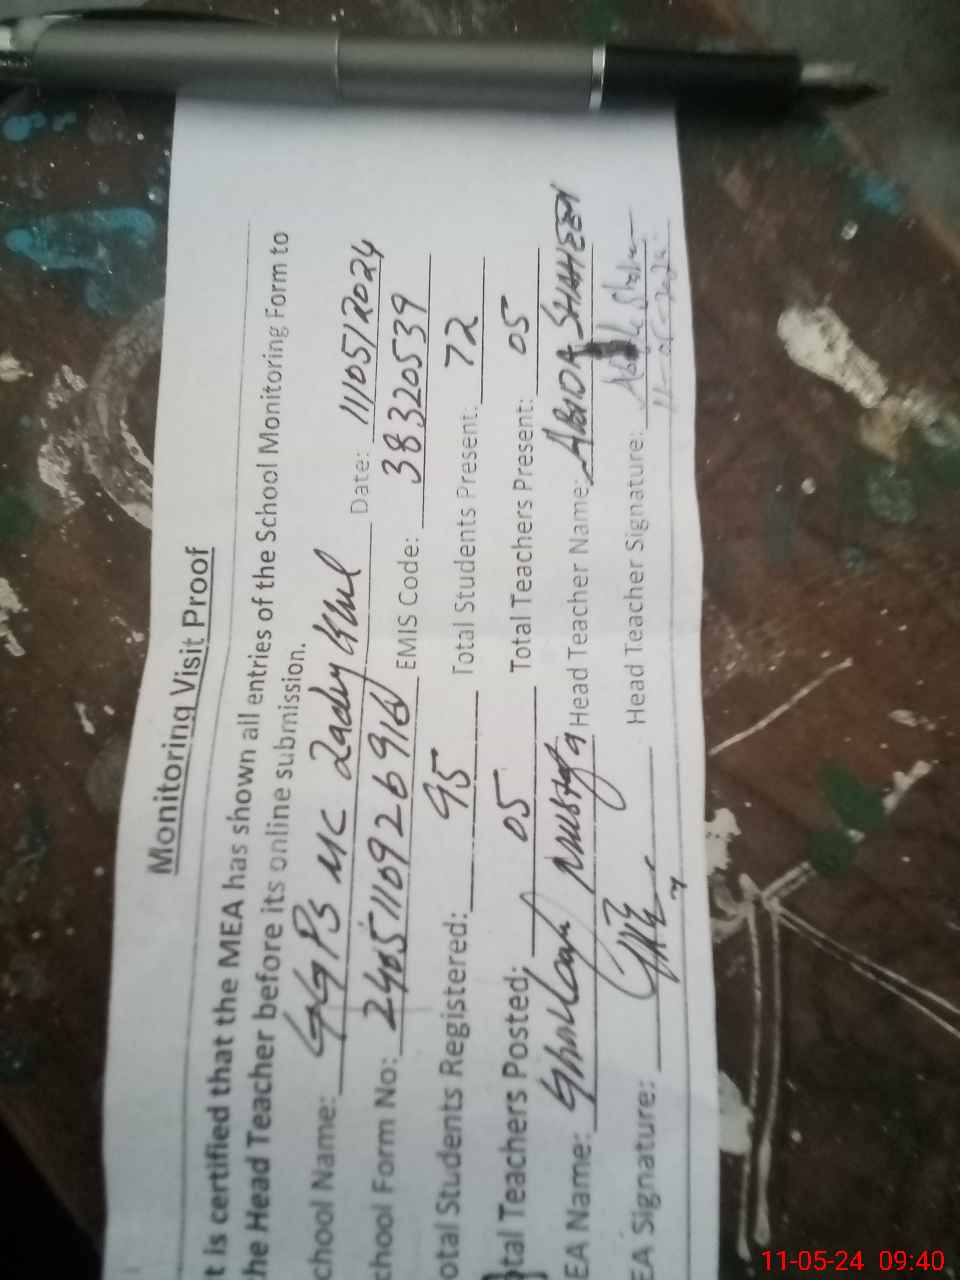 Monitoring Visit Proof
t Is certified that the MEA has shown all entries of the School Monitoring Form to
he Head Teacher before its online submission.
chool Name: GGPS MC Date: 11/05/2024
chool Form No: EMIS Code: 38320539
otal Students Registered: 95 Total Students Present: 72
otal Teachers Posted: 05 Total Teachers Present: 05
EA Name: Head Teacher Name: ABIDA SHAHEEN
EA Signature: Head Teacher Signature:
11-05-2024
11-05-24 09:40